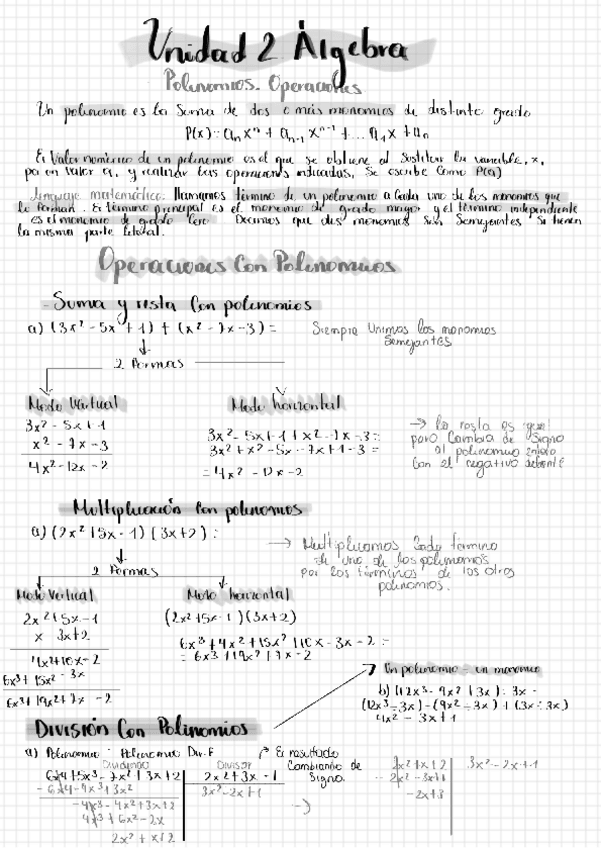 Unidad 2 Álgebra
Polinomios. Operaciones
Un polinomio es la Suma de dos o más monomios de distinto grado
P(x): aₙ xⁿ + aₙ₋₁ xⁿ⁻¹ + ... a₁x + aₙ
El Valor numérico de un polinomio es el que se obtiene al Sustituir la variable, x,
por un valor a, y realizar las operaciones indicadas, Se escribe Como P(a)
Lenguaje matemático: llamamos término de un polinomio a Cada uno de los monomios que
lo forman. El término principal es el monomio de grado mayor y el término independiente
es el monomio de grado Cero. Decimos que dos monomios Son Semejantes Si tienen
la misma parte literal.
Operaciones Con Polinomios
- Suma y resta Con polinomios
a) (3x² - 5x + 1) + (x² - 7x - 3) =
Siempre Unimos los monomios
Semejantes
2 Formas
Modo Vertical
3x² - 5x + 1
x² - 7x - 3
4x² - 12x - 2
Modo horizontal
3x² - 5x + 1 + x² - 7x - 3 =
3x² + x² - 5x - 7x + 1 - 3 =
= 4x² - 12x - 2
→ La resta es igual
pero Cambia de Signo
el polinomio entero
Con el negativo delante
Multiplicación Con polinomios
a) (2x² + 5x - 1) (3x + 2) :
→ Multiplicamos Cada término
de uno de los polinomios
por los términos de los otros
polinomios.
2 Formas
Modo Vertical
2x² + 5x - 1
x 3x + 2
4x² + 10x - 2
6x³ + 15x² - 3x
6x³ + 19x² + 7x - 2
Modo horizontal
(2x² + 5x - 1) (3x + 2)
6x³ + 4x² + 15x² + 10x - 3x - 2 =
= 6x³ + 19x² + 7x - 2
Un polinomio - un monomio
b) (12x³ - 9x² + 3x) : 3x =
(12x³ ÷ 3x) - (9x² ÷ 3x) + (3x ÷ 3x)
4x² - 3x + 1
División Con Polinomios
a) Polinomio : Polinomio
Dividendo
Divisor
6x4 + 5x³ - 7x² + 3x + 2
2x² + 3x - 1
- 6x4 - 9x³ + 3x²
3x² - 2x + 1
- 4x³ - 4x² + 3x + 2
4x³ + 6x² - 2x
2x² + x + 2
El resultado
Cambiarlo de
Signo.
2x² + x + 2
3x² - 2x + 1
- 2x² - 3x + 1
- 2x + 3